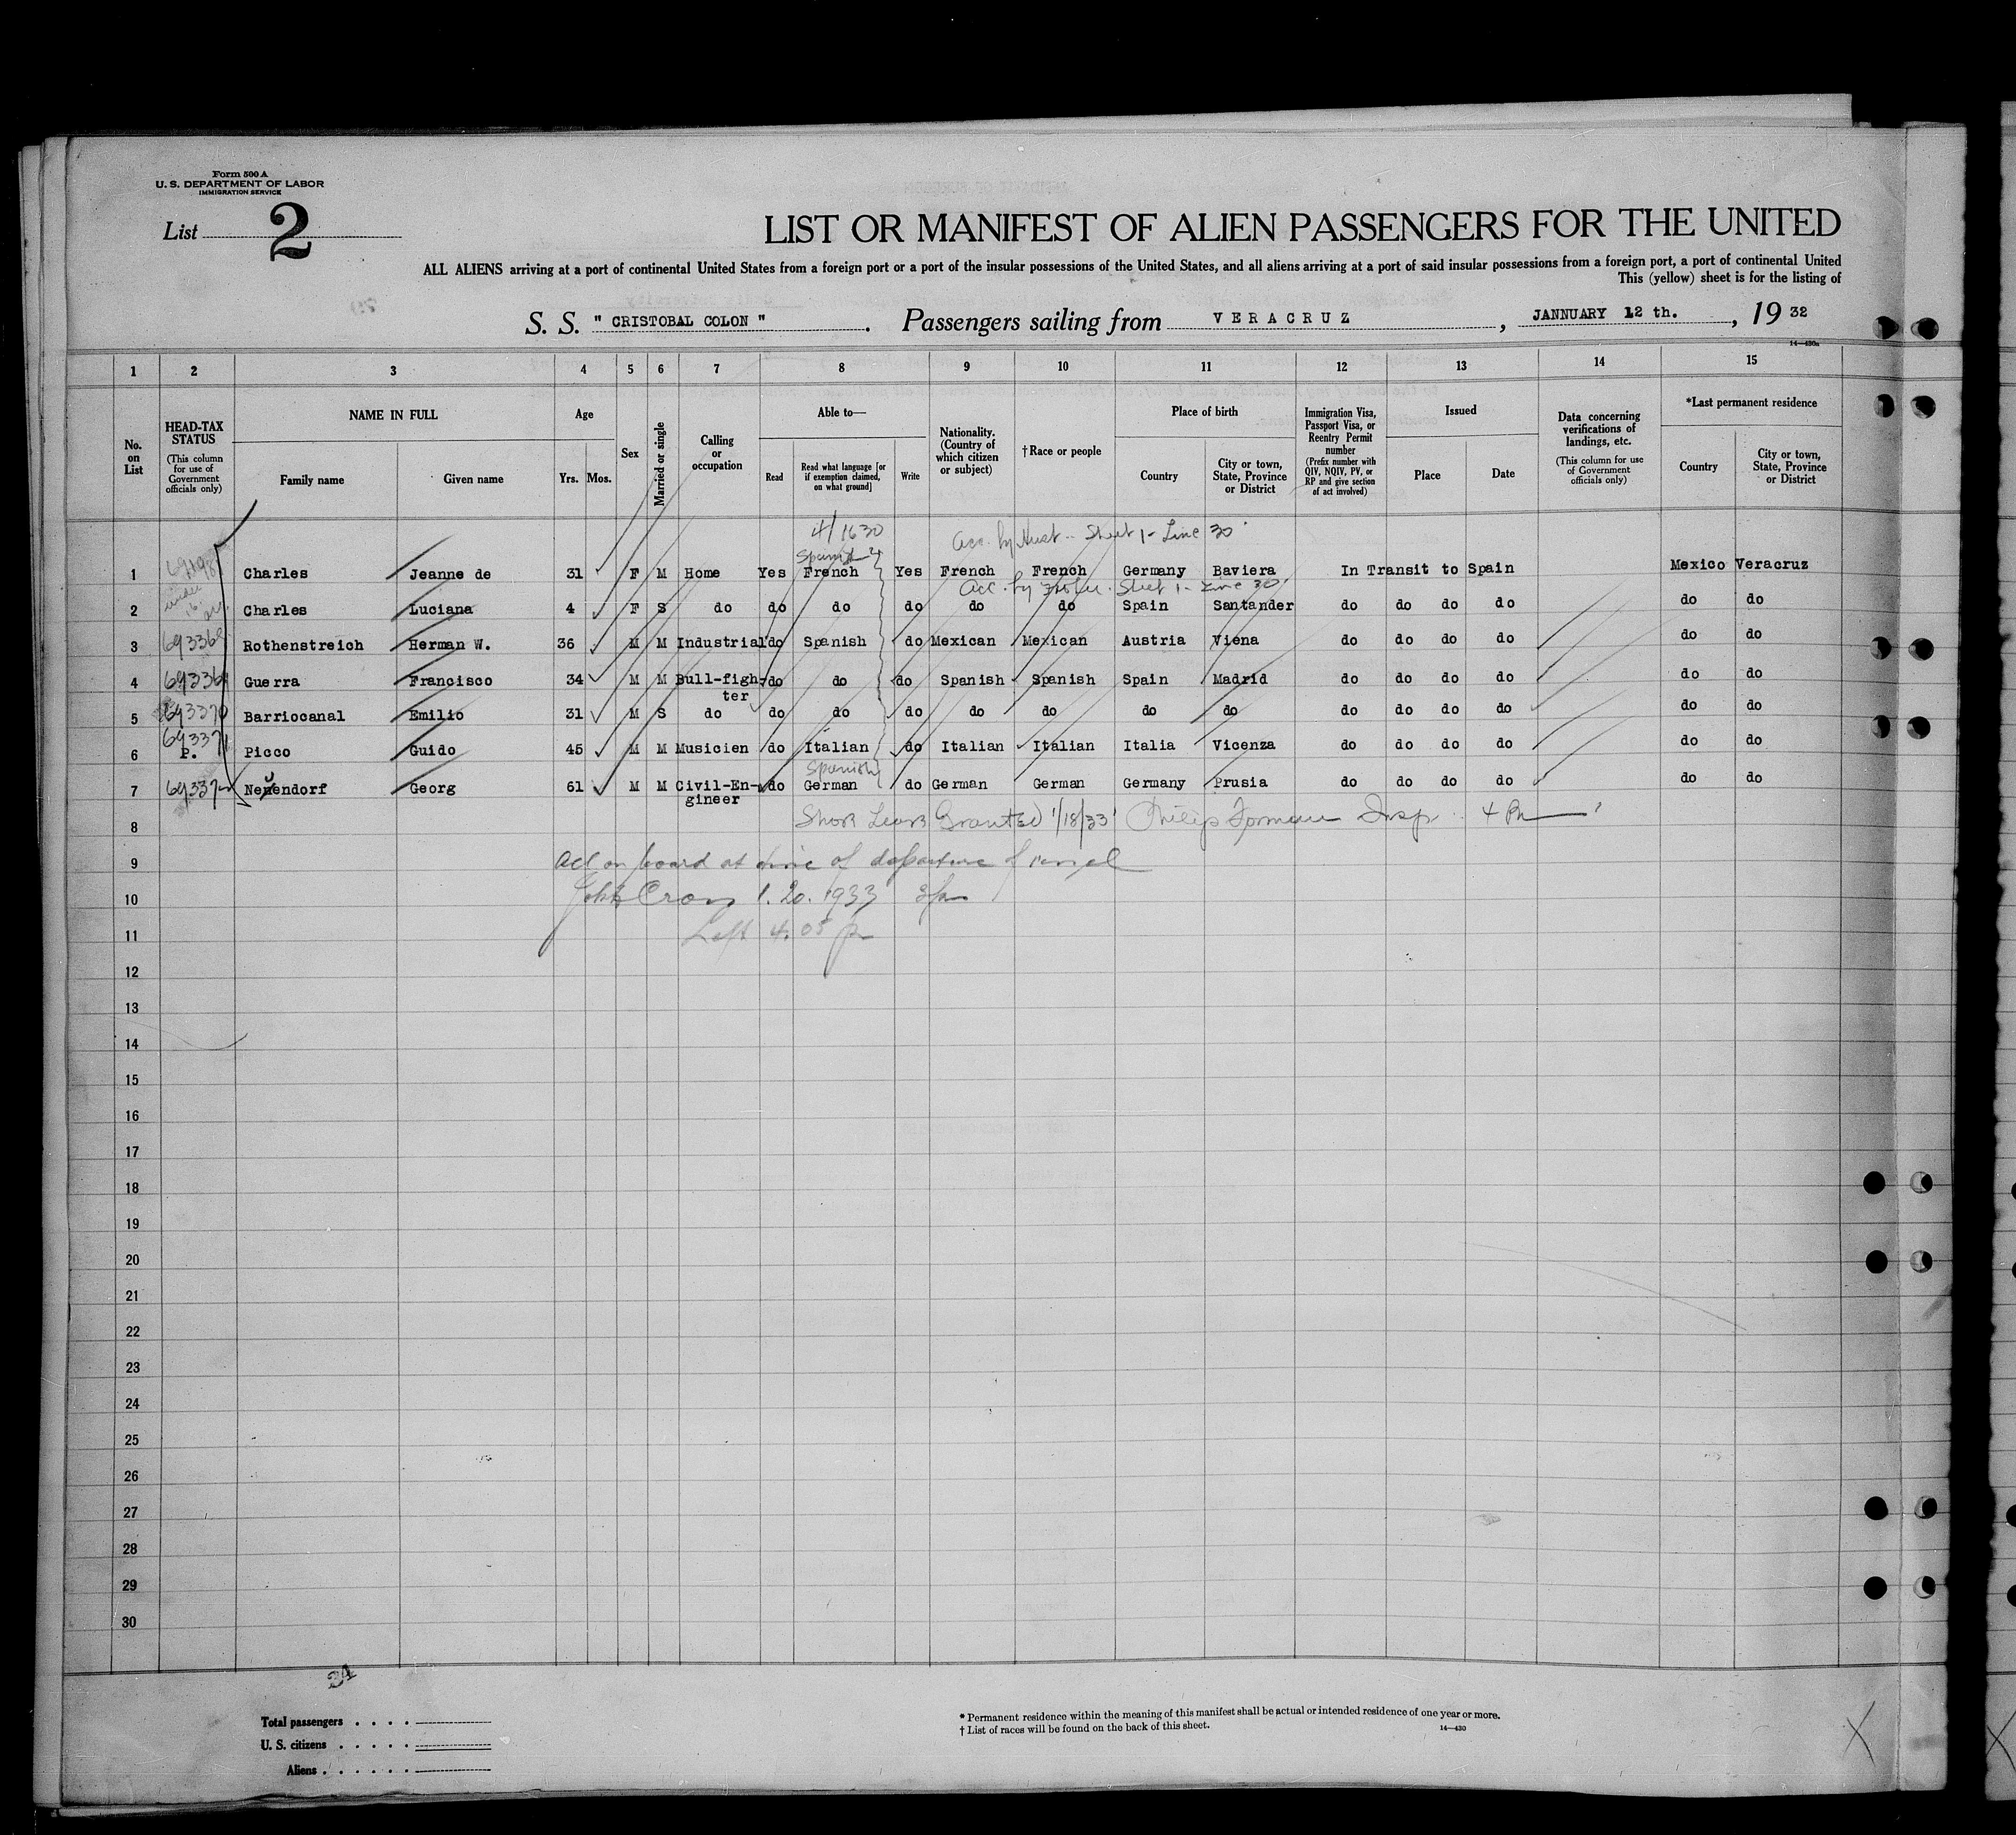 Form 500 A
U. S. DEPARTMENT OF LABOR
IMMIGRATION SERVICE
List 2
LIST OR MANIFEST OF ALIEN PASSENGERS FOR THE UNITED
ALL ALIENS arriving at a port of continental United States from a foreign port or a port of the insular possessions of the United States, and all aliens arriving at a port of said insular possessions from a foreign port, a port of continental United
This (yellow) sheet is for the listing of
S. S. " CRISTOBAL COLON " . Passengers sailing from VERACRUZ , JANNUARY 12 th. , 19 32
14—430a
1 2 3 4 5 6 7 8 9 10 11 12 13 14 15
No. on List
HEAD-TAX STATUS
(This column for use of Government officials only)
NAME IN FULL
Family name
Given name
Age
Yrs. Mos.
Sex
Married or single
Calling or occupation
Able to—
Read
Read what language [or if exemption claimed, on what ground]
Write
Nationality. (Country of which citizen or subject)
†Race or people
Place of birth
Country
City or town, State, Province or District
Immigration Visa, Passport Visa, or Reentry Permit number
(Prefix number with QIV, NQIV, PV, or RP and give section of act involved)
Issued
Place
Date
Data concerning verifications of landings, etc.
(This column for use of Government officials only)
*Last permanent residence
Country
City or town, State, Province or District
4/1630
acc. by Hust.. Sheet 1 - Line 30
Spanish
1 Charles Jeanne de 31 F M Home Yes French Yes French French Germany Baviera In Transit to Spain Mexico Veracruz
acc. by Sheet 1 - Line 30
under 16
2 Charles Luciana 4 F S do do do do do do Spain Santander do do do do do do
3 693368 Rothenstreich Herman W. 36 M M Industrial do Spanish do Mexican Mexican Austria Viena do do do do do do
4 693369 Guerra Francisco 34 M M Bull-figh-ter do do do Spanish Spanish Spain Madrid do do do do do do
5 693370 Barriocanal Emilio 31 M S do do do do do do do do do do do do do do
6 693371 P. Picco Guido 45 M M Musicien do Italian do Italian Italian Italia Vicenza do do do do do do
Spanish
7 693372 Neuendorf Georg 61 M M Civil-En-gineer do German do German German Germany Prusia do do do do do do
8 Shore Leave Granted 1/18/33 Philip Forman Insp. 4 Pm
9 all on board at time of departure of vessel
10 John Cron 1. 20. 1933 3 pm
11 Left 4.05 p
12
13
14
15
16
17
18
19
20
21
22
23
24
25
26
27
28
29
30
34
Total passengers . . . .
U. S. citizens . . . . .
Aliens . . . . . .
* Permanent residence within the meaning of this manifest shall be actual or intended residence of one year or more.
† List of races will be found on the back of this sheet.
14—430